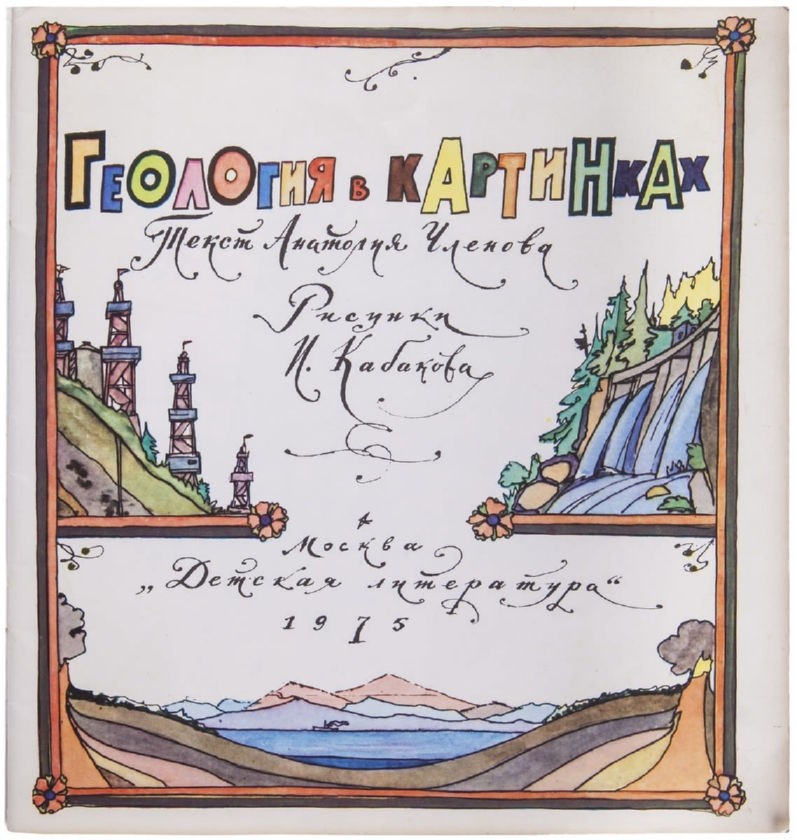 ГЕОЛОГИЯ В КАРТИНКАХ
Текст Анатолия Членова
Рисунки
И. Кабакова
Москва
„Детская литература“
1975